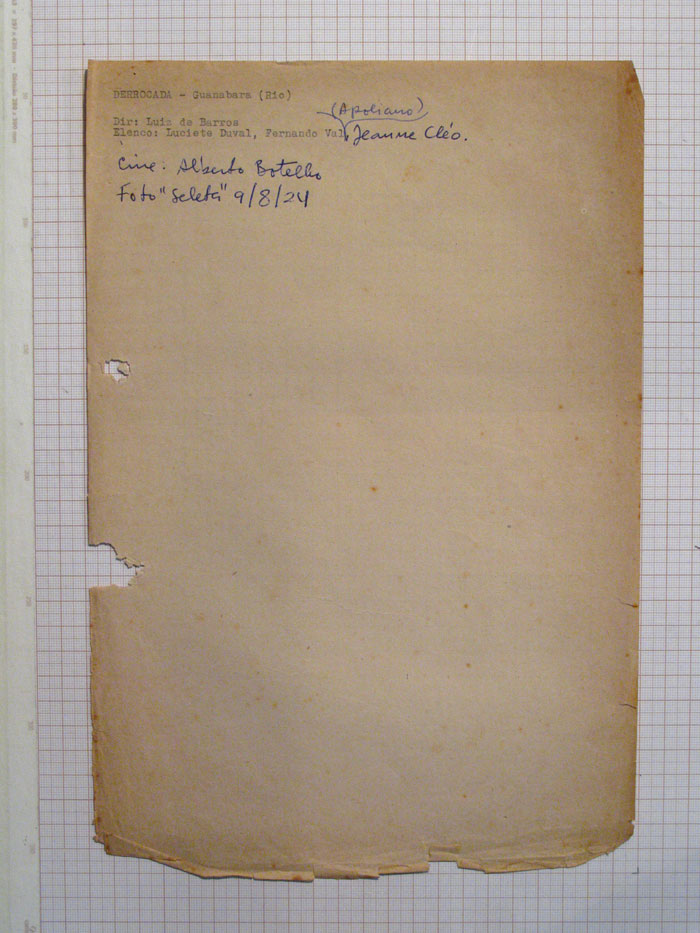 DERROCADA - Guanabara (Rio)
(Apoliano)
Dir: Luiz de Barros
Elenco: Luciete Duval, Fernando Val, Jeanne Cléo.
Cine: Alberto Botelho
Foto "Seleta" 9/8/24